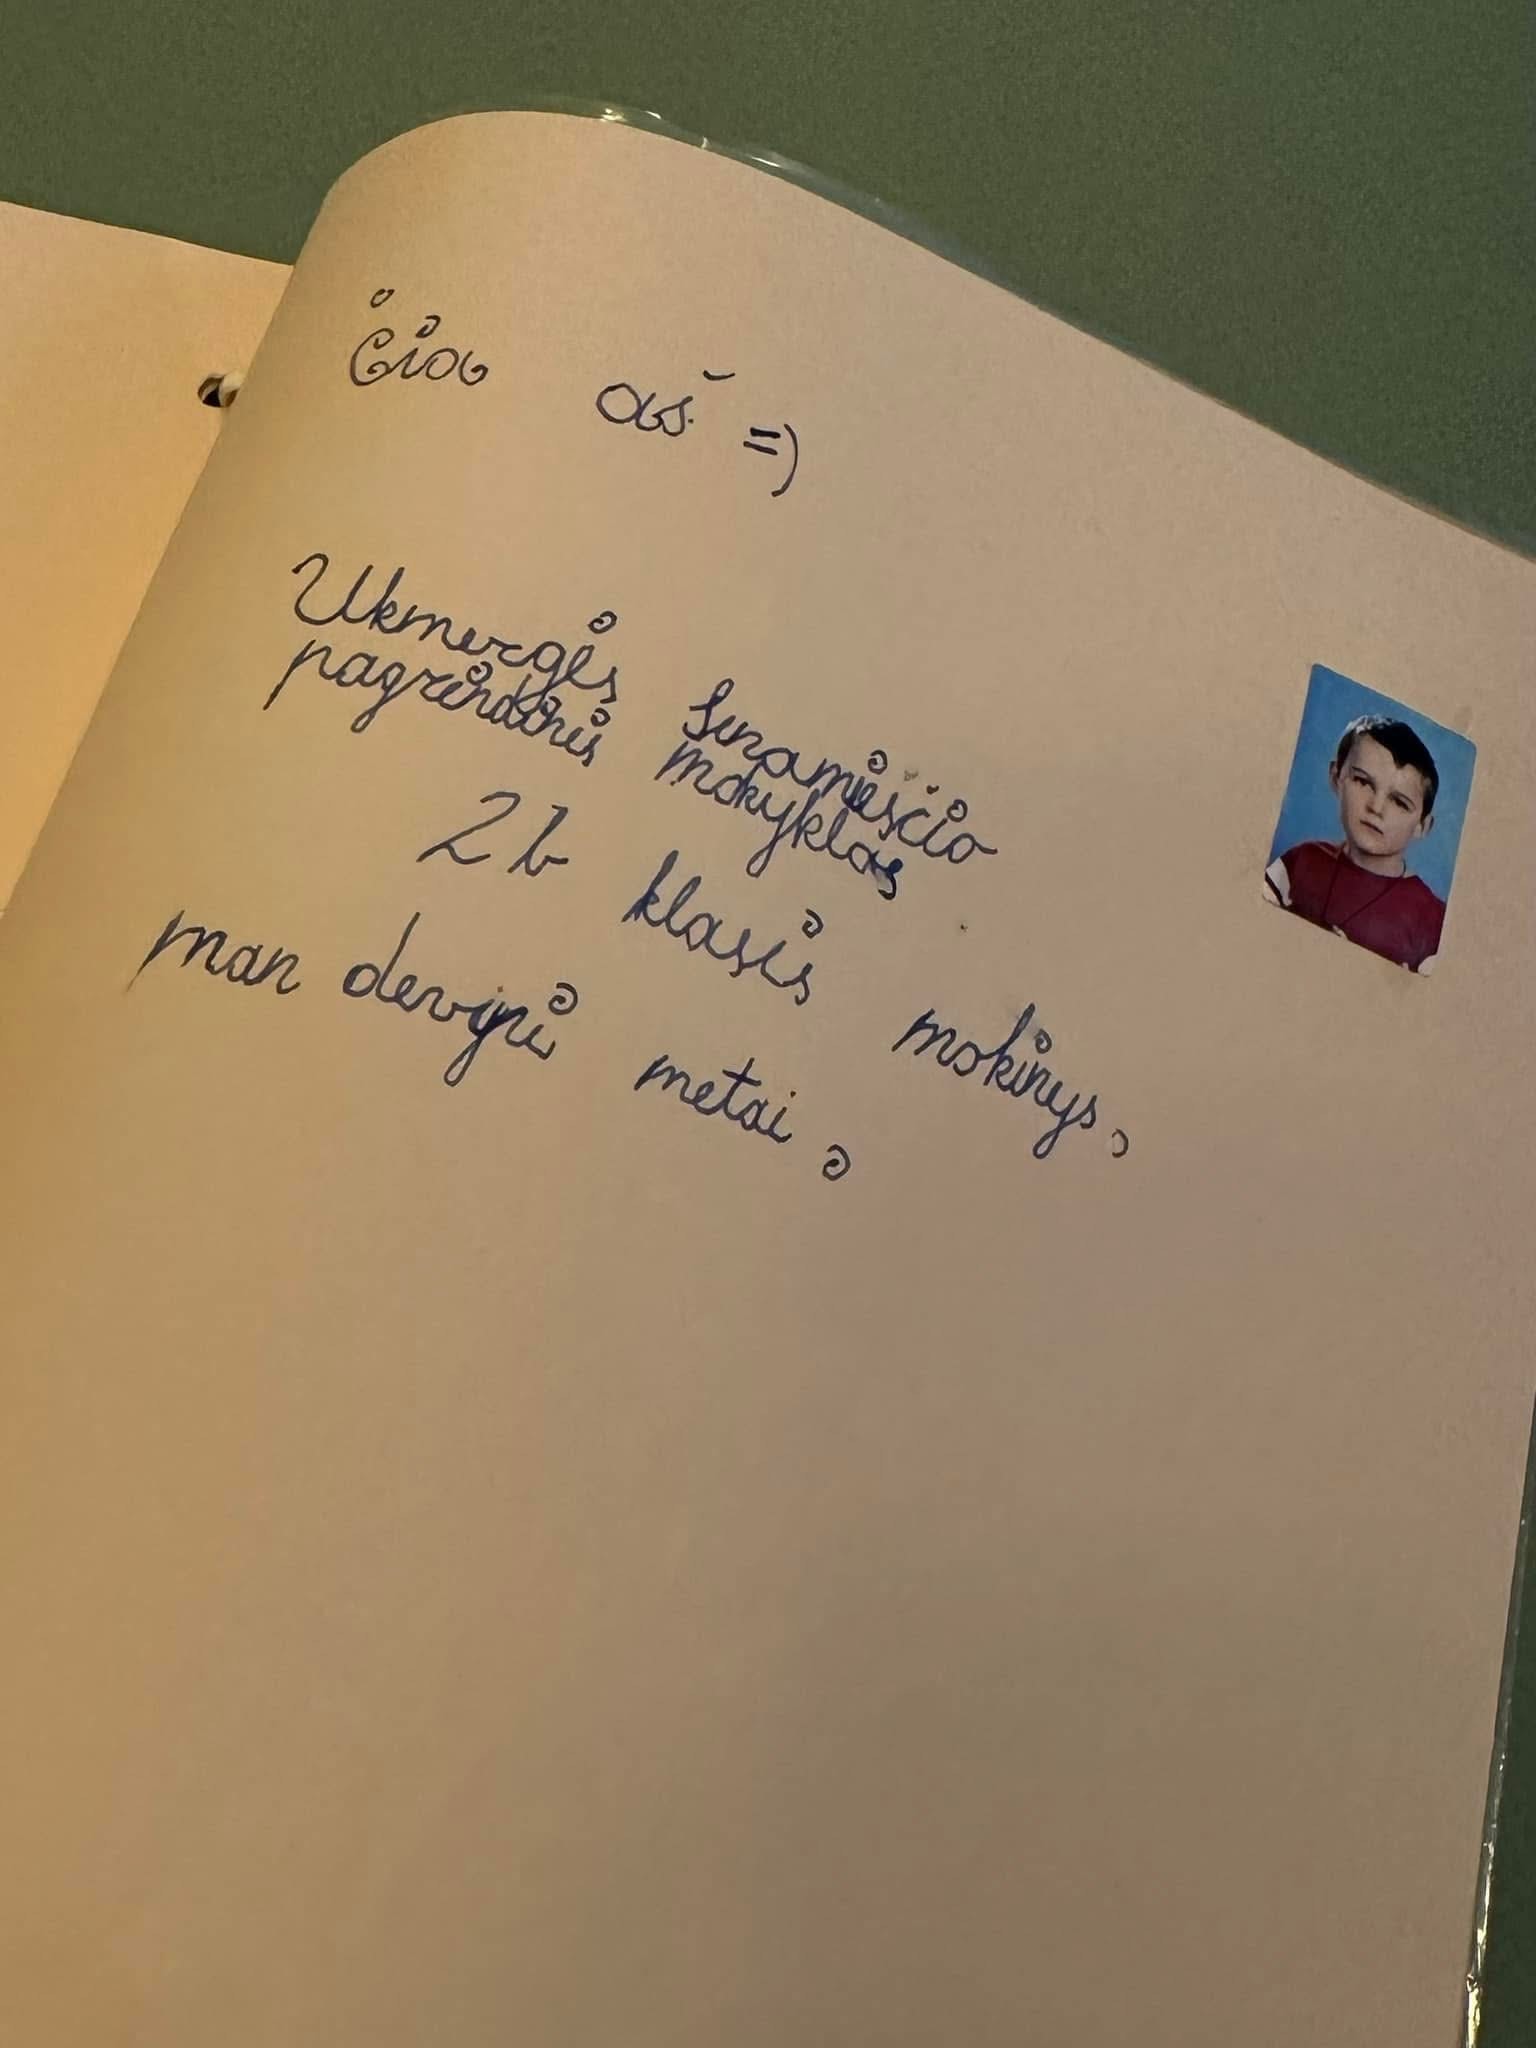 Čia aš =)
Ukmergės Senamiesčio
pagrindinės mokyklos
2b klasės mokinys.
man devyni metai.